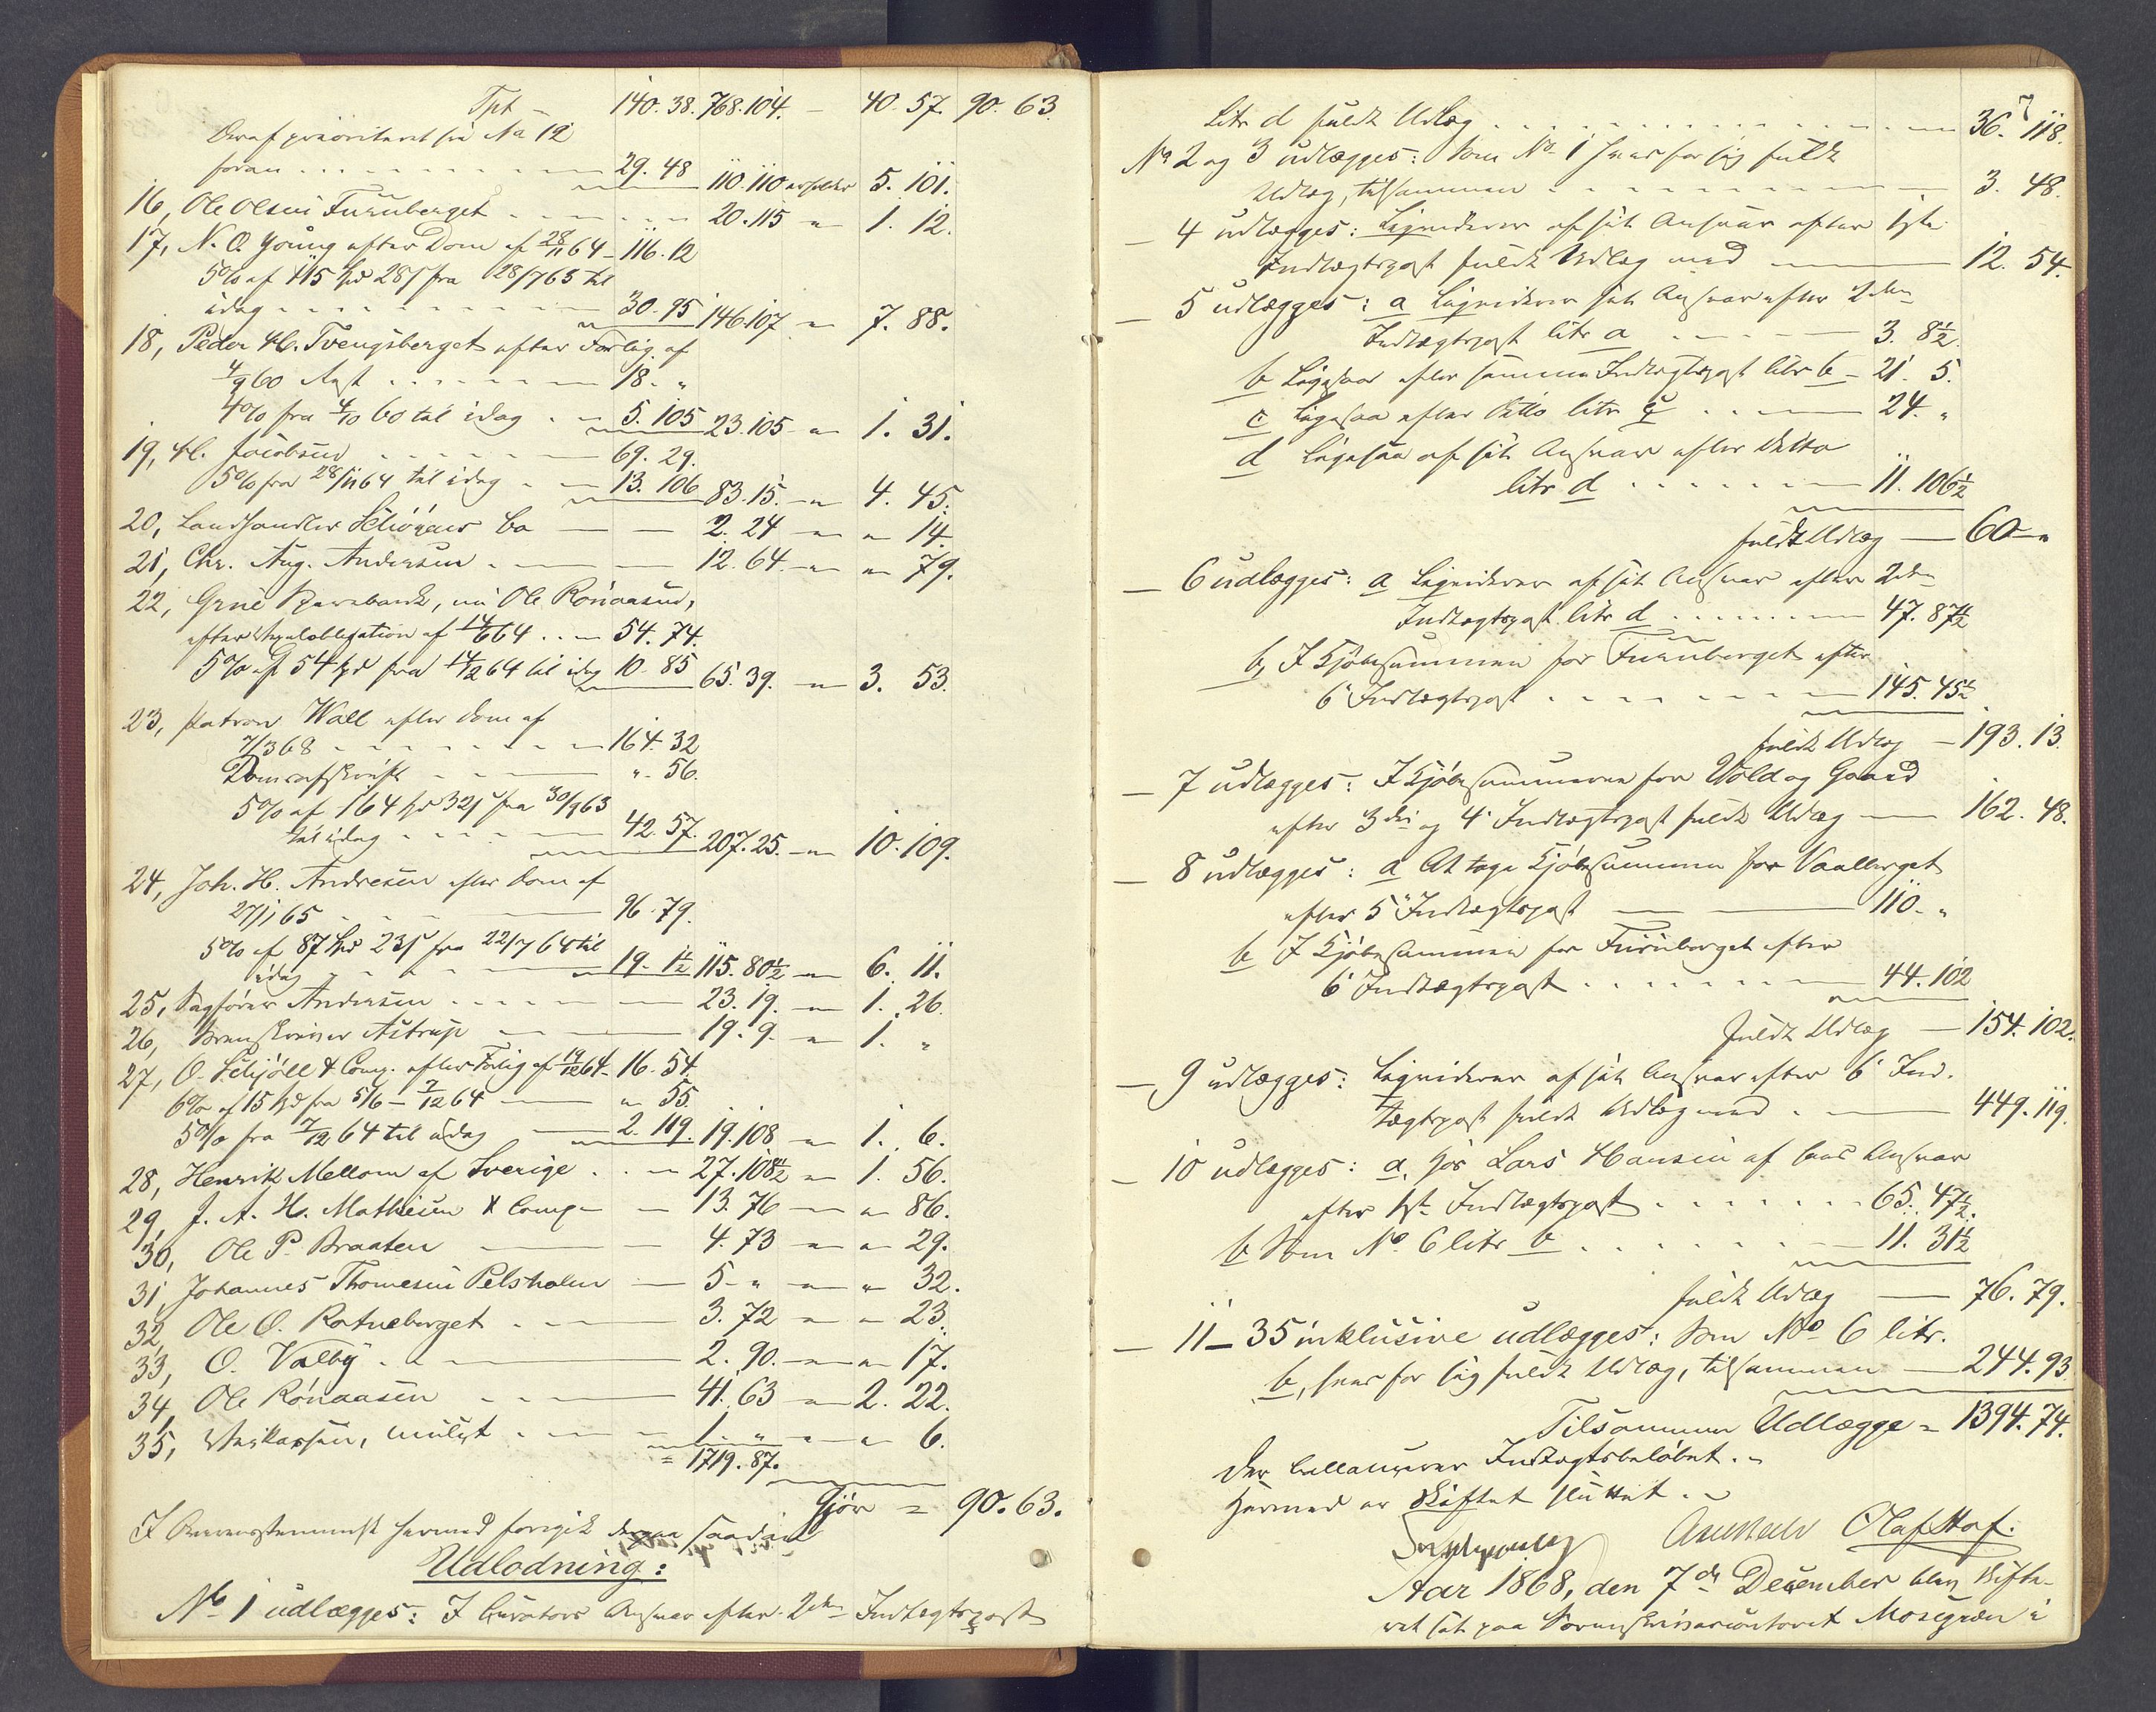 Tpt – 140. 38. 768. 104. – 40. 57. 90. 63.
Deraf prioriteret fra No 12
foran 29. 48 110. 110 5. 101.
16, Ole Olsen Furuberget 20. 115 " 1. 12.
17, N. O. Young efter Dom af 28/11 64 – 116. 12
5% af 115 Spd 28 s fra 28/7 63 til
idag 30. 95 146. 107 " 7. 88.
18, Peder H. Tvengsberget efter Forlig af
4/9 60 Rest 18. "
4% fra 4/10 60 til idag 5. 105 23. 105 " 1. 31.
19, H. Jacobsen 69. 29.
5% fra 28/11 64 til idag 13. 106 83. 15. " 4. 45.
20, Landhandler Co 2. 24 " " 14.
21, Chr. Aug. Andersen 12. 64. " " 79.
22, Grue Sparebank, nu Ole Rönaasen,
efter obligation af 14/6 64 54. 74.
5% af 54 Spd fra 14/12 64 til idag 10. 85 65. 39. " 3. 53.
23, Patron Wall efter Dom af
7/3 68 164. 32
Domsafskrift ". 56.
5% af 164 Spd 32 s fra 30/9 63
til idag 42. 57. 207. 25. " 10. 109.
24, Joh. H. Andresen efter Dom af
27/1 65 96. 79.
5% af 87 Spd 23 s fra 22/7 64 til
idag 19. 1½ 115. 80½ " 6. 11.
25, Sagfører Andersen 23. 19. " 1. 26.
26, Sorenskriver Astrup 19. 9. " 1. "
27, O. Schjöll & Comp. efter Forlig af 19/12 64 – 16. 54.
6% af 15 Spd fra 5/6 – 7/12 64 " 55
5% fra 7/12 64 til idag 2. 119. 19. 108 " 1. 6.
28, Henrik Mellom af Sverige 27. 108½ " 1. 56.
29, J. A. H. Mathiesen & Comp 13. 76 " " 86.
30, Ole P. Braaten 4. 73 " " 29.
31, Johannes Thomesen Pelsholen 5 " " " 32.
32, Ole O. Rotneberget 3. 72 " " 23.
33, O. Valby 2. 90. " " 17.
34, Ole Rönaasen 41. 63 " 2. 22.
35, mulgt 1. " " " 6.
= 1719. 87.
Gjör = 90. 63.
I Overensstemmelse hermed foregik saadan
Udlodning:
No 1 udlægges: I Curators Ansvar efter 2den Indtægtspost
7
Litr d fuldt Udlæg 36. 118.
No 2 og 3 udlægges: Som No 1 hver for sig fuldt
Udlæg, tilsammen 3. 48.
– 4 udlægges: Liqviderer af sit Ansvar efter 1ste
Indtægtspost fuldt Udlæg med 12. 54
– 5 udlægges: a Liqviderer sit Ansvar efter 2den
Indtægtspost litr a 3. 8½.
b Ligesaa efter samme Indtægtspost litr b – 21. 5.
c Ligesaa efter Ditto litr c 24. "
d Ligesaa af sit Ansvar efter Ditto
litr d 11. 106½
fuldt Udlæg – 60 "
– 6 udlægges: a Liqviderer af sit Ansvar efter 2den
Indtægtspost litr d 47. 87½
b, I Kjöbesummen for Furuberget efter
6' Indtægtspost 145. 45½
fuldt Udlæg – 193. 13.
– 7 udlægges: I Kjöbesummerne for Vold og Gaard
efter 3die og 4' Indtægtspost fuldt Udlæg 162. 48.
– 8 udlægges: a At tage Kjöbesummen for Vaalberget
efter 5' Indtægtspost 110. "
b I Kjöbesummen for Furuberget efter
6' Indtægtspost 44. 102
fuldt Udlæg – 154. 102.
– 9 udlægges: Liqviderer af sit Ansvar efter 6' Ind-
tægtspost fuldt Udlæg med 449. 119.
– 10 udlægges: a, hos Lars Hansen af hans Ansvar
efter 1ste Indtægtspost 65. 47½.
b Som No. 6 litr b 11. 31½
fuldt Udlæg 76. 79.
– 11 – 35 inklusive udlægges: Som No 6 litr.
b, hver for sig fuldt Udlæg, tilsammen 244. 93
Tilsammen Udlægge = 1394. 74.
der ballancerer Indtægtsbeløbet. –
Hermed er Skiftet sluttet. –
Olaf Hof.
Aar 1868, den 7de December blev Skifte-
ret sat paa Sorenskrivercontoret Mosegrøn i